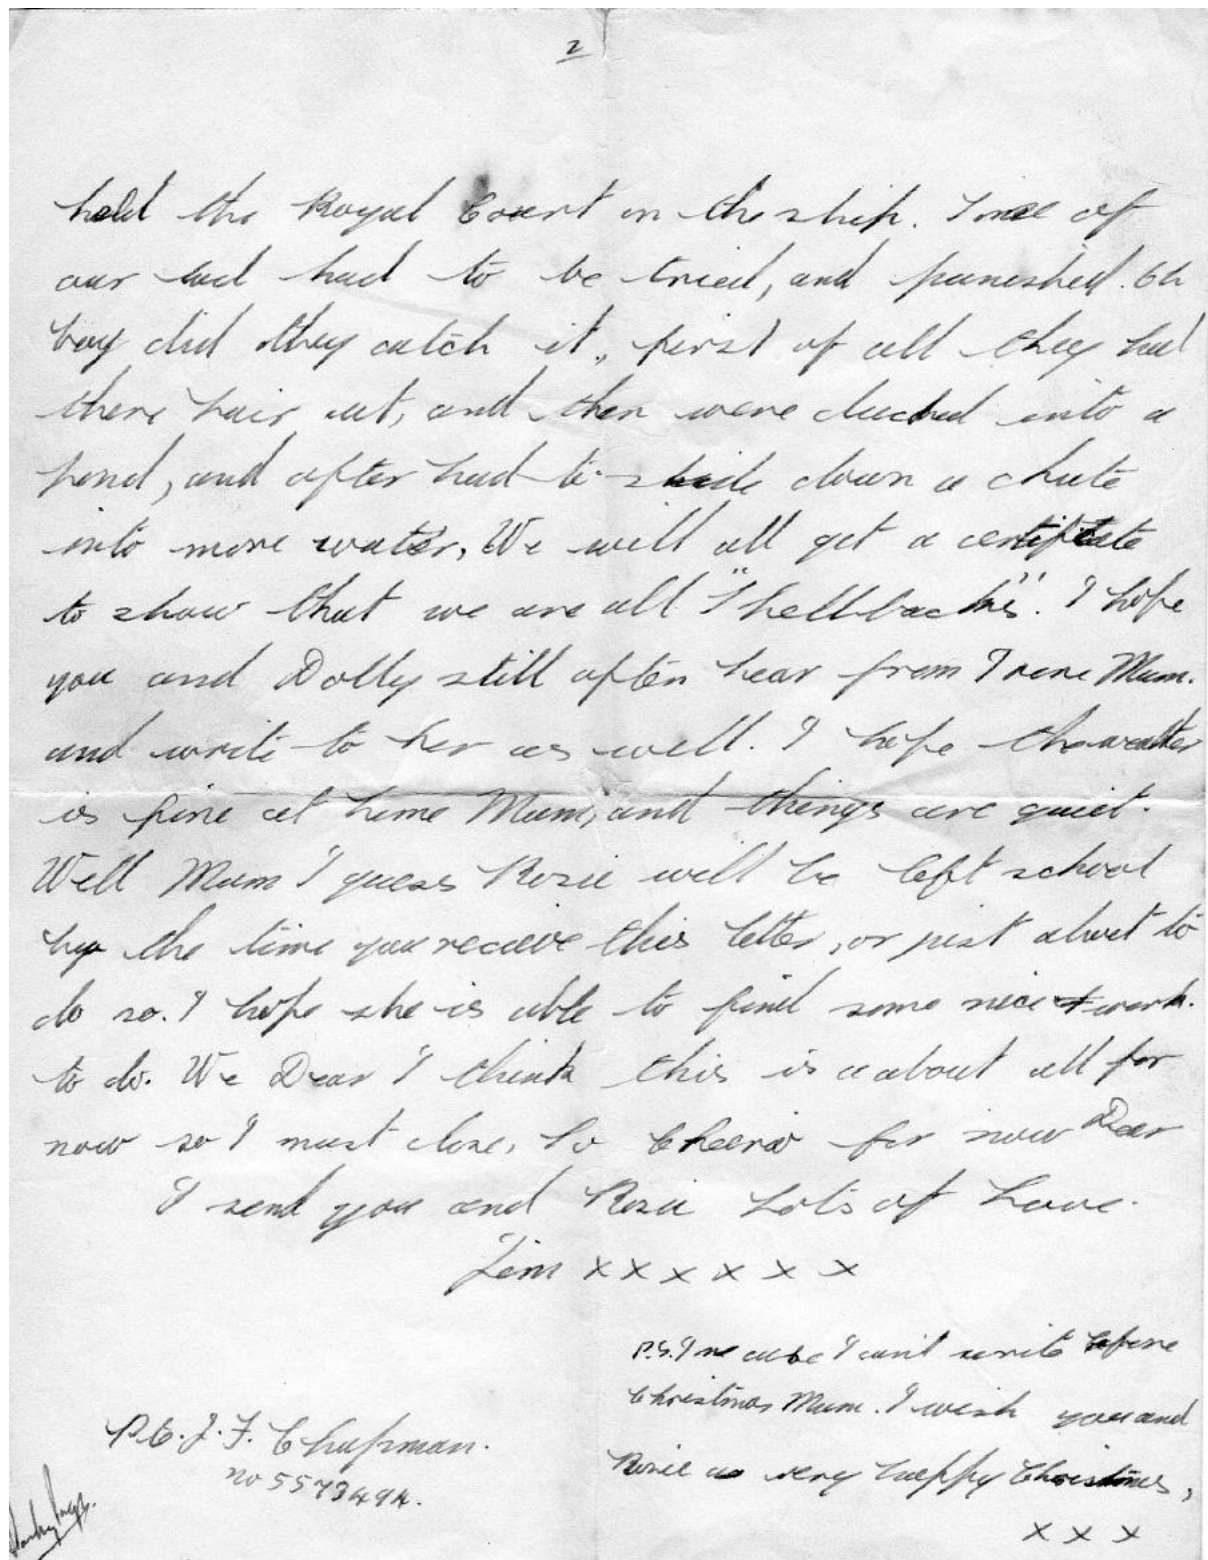 2
held the Royal Court on the ship. Some of
our lad had to be tried, and punished. Oh
boy did they catch it, first of all they had
there hair cut, and then were ducked into a
pond, and after had to slide down a chute
into more water, We will all get a certificate
to show that we are all "Shellbacks". I hope
you and Dolly still often hear from Irene Mum.
and write to her as well. I hope the weather
is fine at home Mum, and things are quiet.
Well Mum I guess Rosie will be left school
by the time you recieve this letter, or just about to
do so. I hope she is able to find some nice work.
to do. We Dear I think this is aabout all for
now so I must close, So Cheerio for now Dear
I send you and Rosie Lots of Love.
Jim x x x x x x
P.S. I can't write before
Christmas Mum. I wish you and
Rosie a very happy Christmas,
x x x
Pte. J. F. Chapman.
no 5573494.